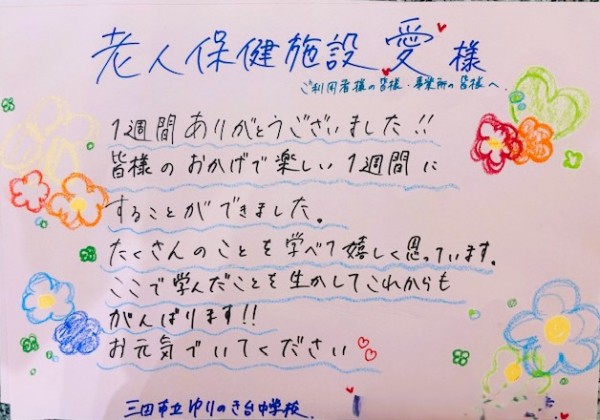 老人保健施設 愛 様
ご利用者様の皆様・事業所の皆様へ
1週間ありがとうございました!!
皆様のおかげで楽しい1週間に
することができました。
たくさんのことを学べて嬉しく思っています。
ここで学んだことを生かしてこれからも
がんばります!!
お元気でいてください
三田市立ゆりのき台中学校